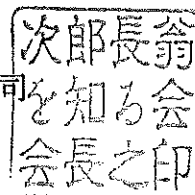 次郎長翁
を知る会
会長之印
司